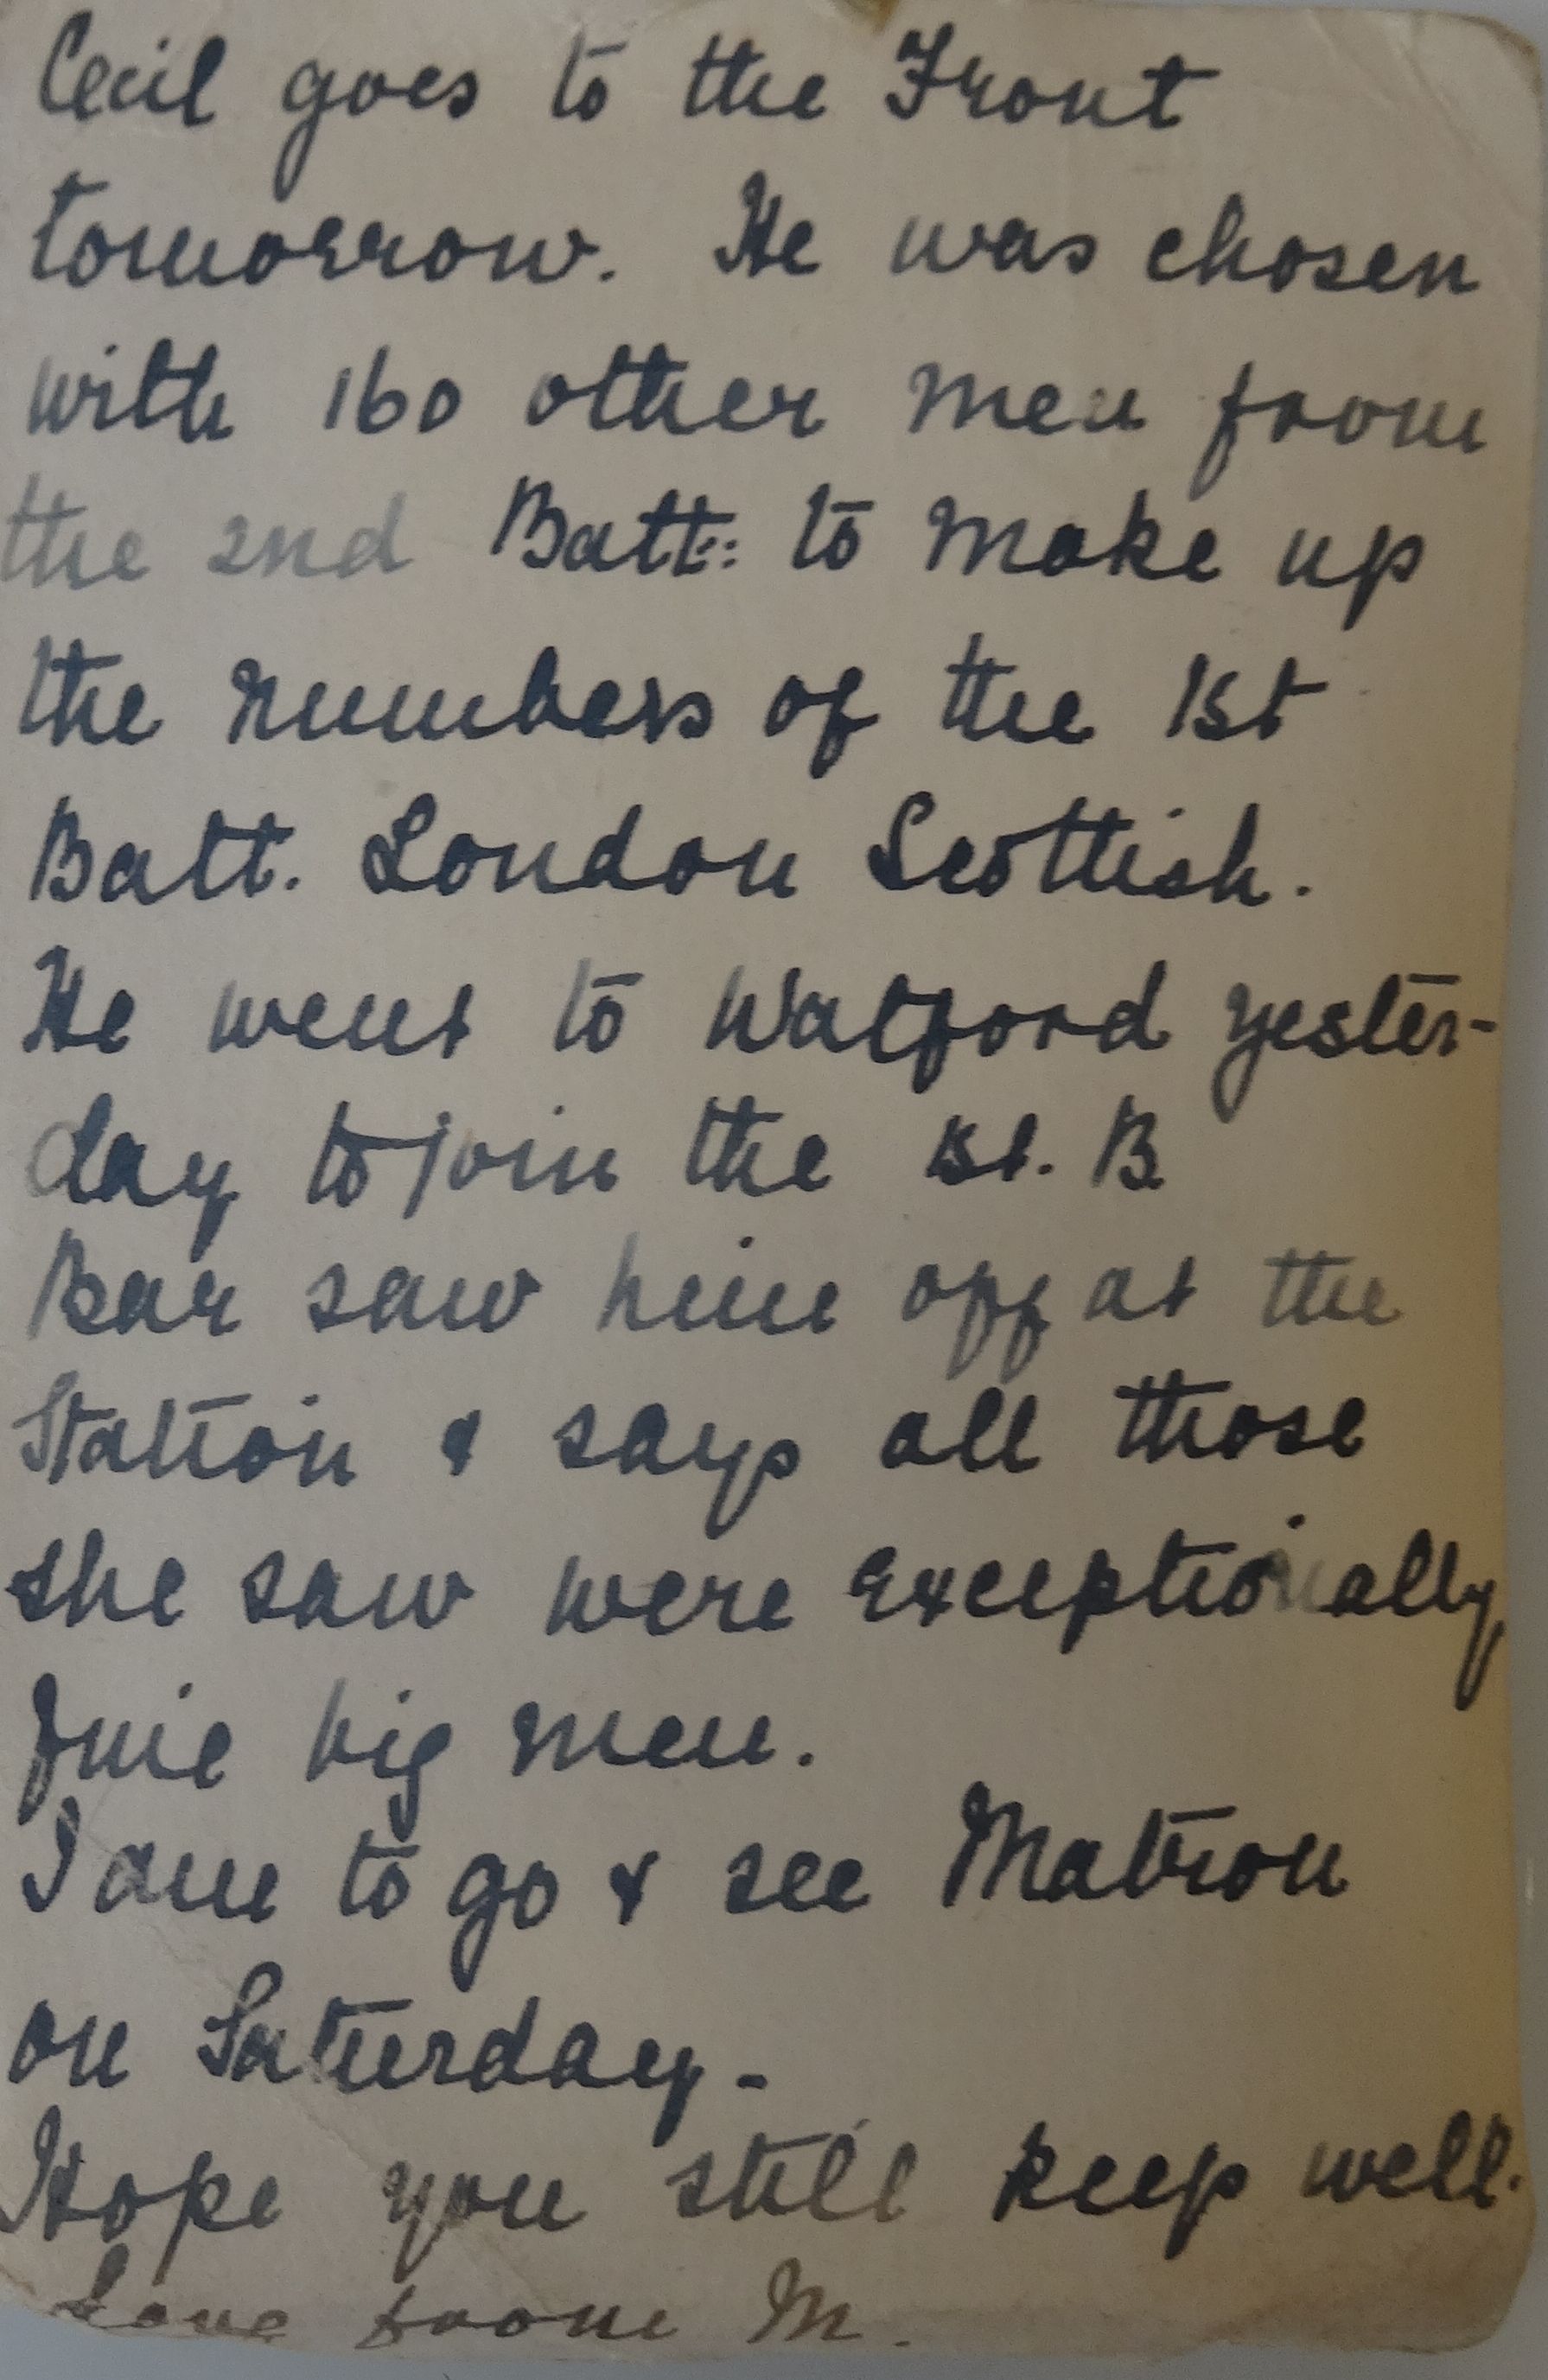 Cecil goes to the Front
tomorrow. He was chosen
with 160 other men from
the 2nd Batt: to make up
the numbers of the 1st
Batt. London Scottish.
He went to Watford yester-
day to join the 1st. B.
Bar saw him off at the
Station & says all those
she saw were exceptionally
fine big men.
I am to go & see Matron
on Saturday -
Hope you still keep well.
Love from M.